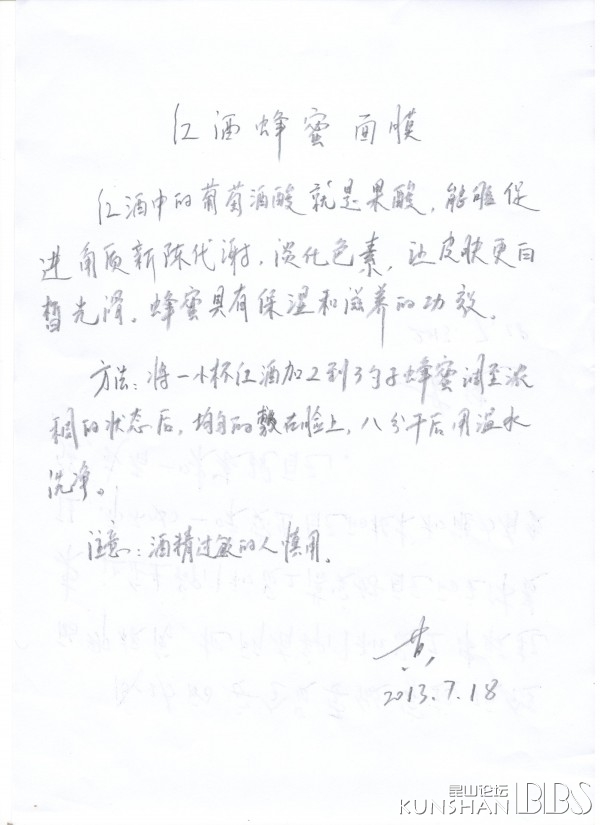 红酒蜂蜜面膜
红酒中的葡萄酒酸就是果酸，能够促
进角质新陈代谢，淡化色素，让皮肤更白
皙光滑。蜂蜜具有保湿和滋养的功效。
方法：将一小杯红酒加2到3勺子蜂蜜调至浓
稠的状态后，均匀的敷在脸上，八分干后用温水
洗净。
注意：酒精过敏的人慎用。
黄
2013.7.18
昆山论坛
KUNSHAN BBS